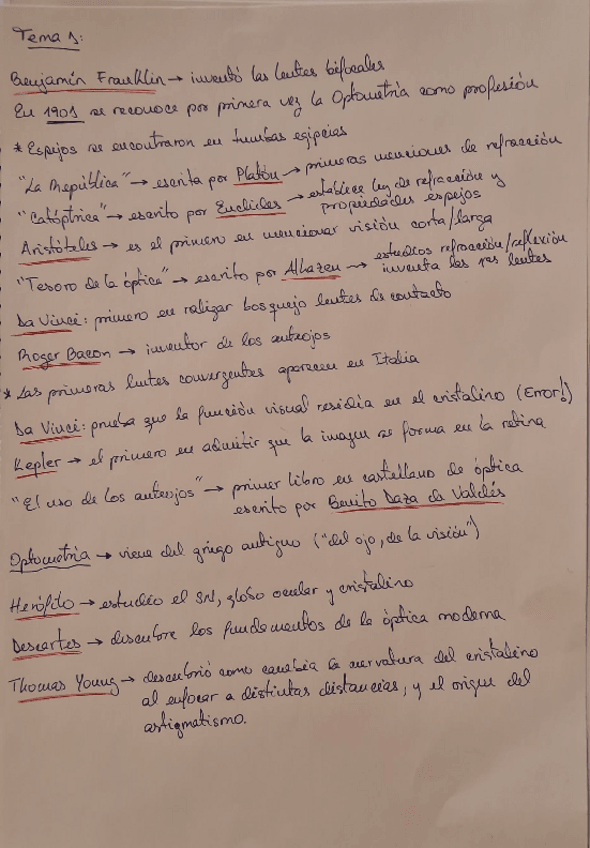 Tema 1:
Benjamín Franklin → inventó las lentes bifocales
En 1901 se reconoce por primera vez la Optometría como profesión
* Espejos se encontraron en tumbas egipcias
"La República" → escrita por Platón → primeras menciones de refracción
"Catóptrica" → escrito por Euclides → establece ley de refracción y
propiedades espejos
Aristóteles → es el primero en mencionar visión corta/larga
"Tesoro de la óptica" → escrito por Alhazen → estudios refracción/reflexión
inventa las 1as lentes
Da Vinci: primero en realizar bosquejo lentes de contacto
Roger Bacon → inventor de los anteojos
* Las primeras lentes convergentes aparecen en Italia
Da Vinci: prueba que la función visual residía en el cristalino (Error!)
Kepler → el primero en admitir que la imagen se forma en la retina
"El uso de los anteojos" → primer libro en castellano de óptica
escrito por Benito Daza de Valdés
Optometría → viene del griego antiguo ("del ojo, de la visión")
Herófilo → estudió el SN, globo ocular y cristalino
Descartes → descubre los fundamentos de la óptica moderna
Thomas Young → descubrió como cambia la curvatura del cristalino
al enfocar a distintas distancias, y el origen del
astigmatismo.